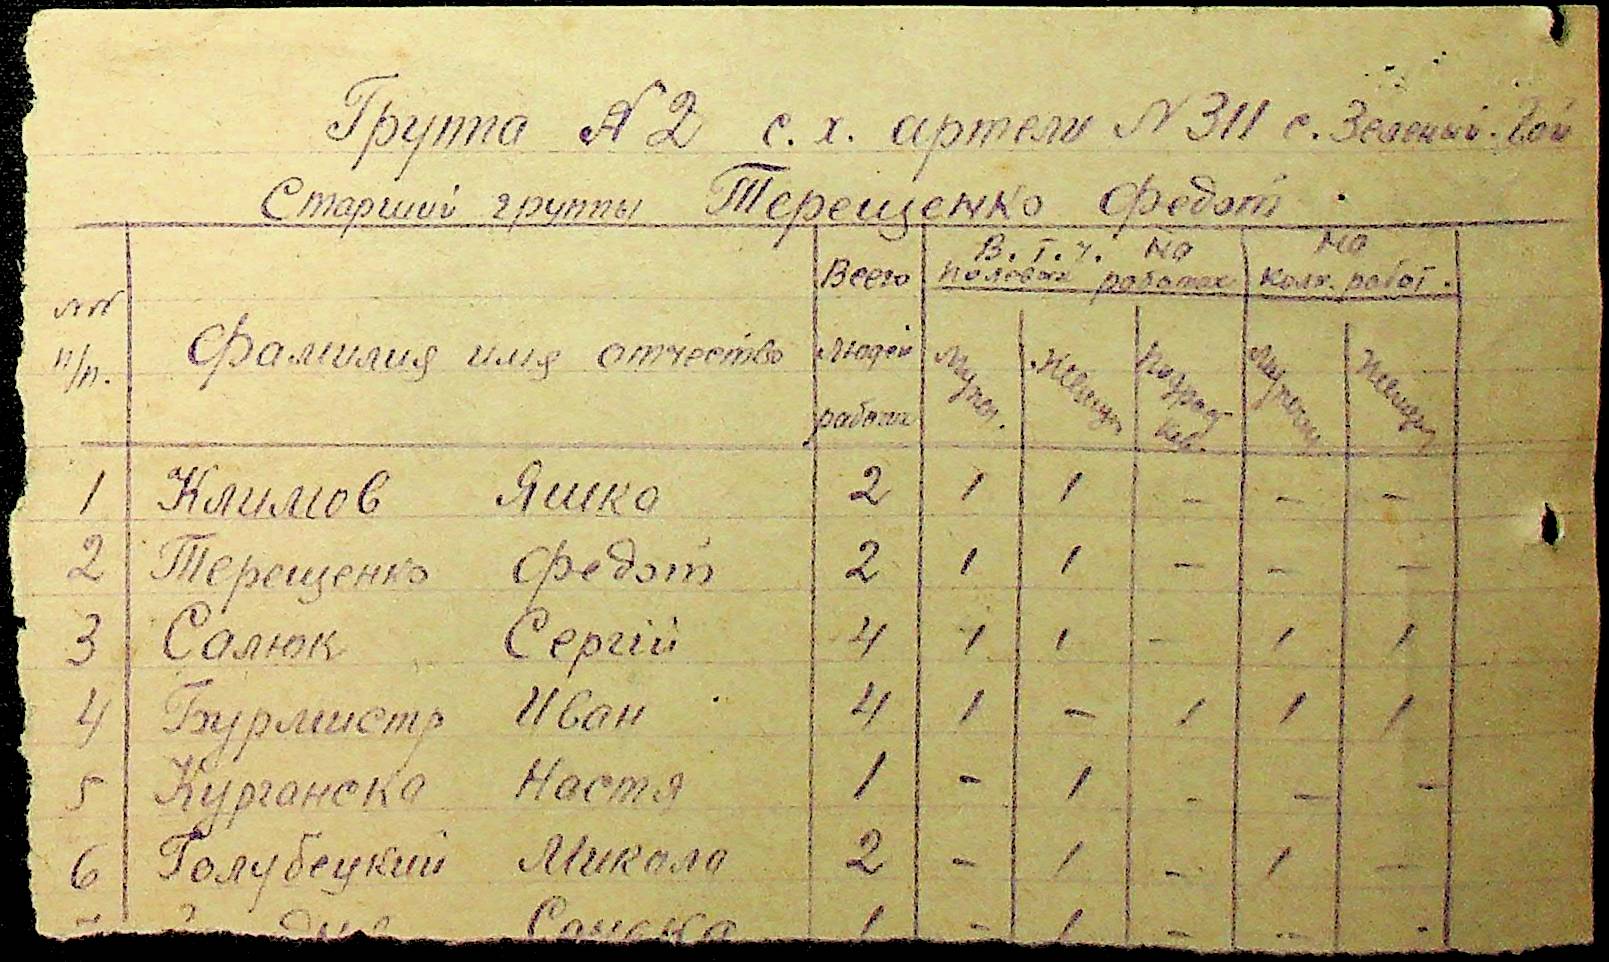 Группа № 2 с. х. артели № 311 с. Зеленый-Гай
Старший группы Терещенко Федот
№№ п/п. Фамилия имя отчество Всего людей работ. В. т. ч. на полевых работах На колх. работ.
Мужч. Женщин Подрост Мужчин Женщин
1 Климов Яшка 2 1 1 - - -
2 Терещенко Федот 2 1 1 - - -
3 Салюк Сергій 4 1 1 - 1 1
4 Бурмистр Иван 4 1 - 1 1 1
5 Курганска Настя 1 - 1 - - -
6 Голубецкий Микола 2 - 1 - 1 -
1 - 1 - - -